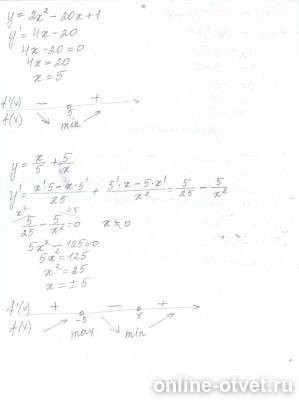 y = 2x² - 20x + 1
y' = 4x - 20
4x - 20 = 0
4x = 20
x = 5
f'(x) - +
f(x) 5 min
y = x/5 + 5/x
y' = (x'·5 - x·5')/25 + (5'·x - 5·x')/x² = 5/25 - 5/x²
x² 25
5/25 - 5/x² = 0 x ≠ 0
5x² - 125 = 0
5x² = 125
x² = 25
x = ± 5
f'(x) + - +
f(x) -5 max 5 min
online-otvet.ru